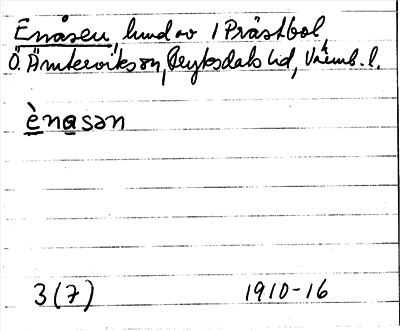 Enåsen, hmd av 1 Prästbol,
Ö. Ämterviks sn, Fryksdals hd, Värml. l.
ènasən
3(7) 1910-16